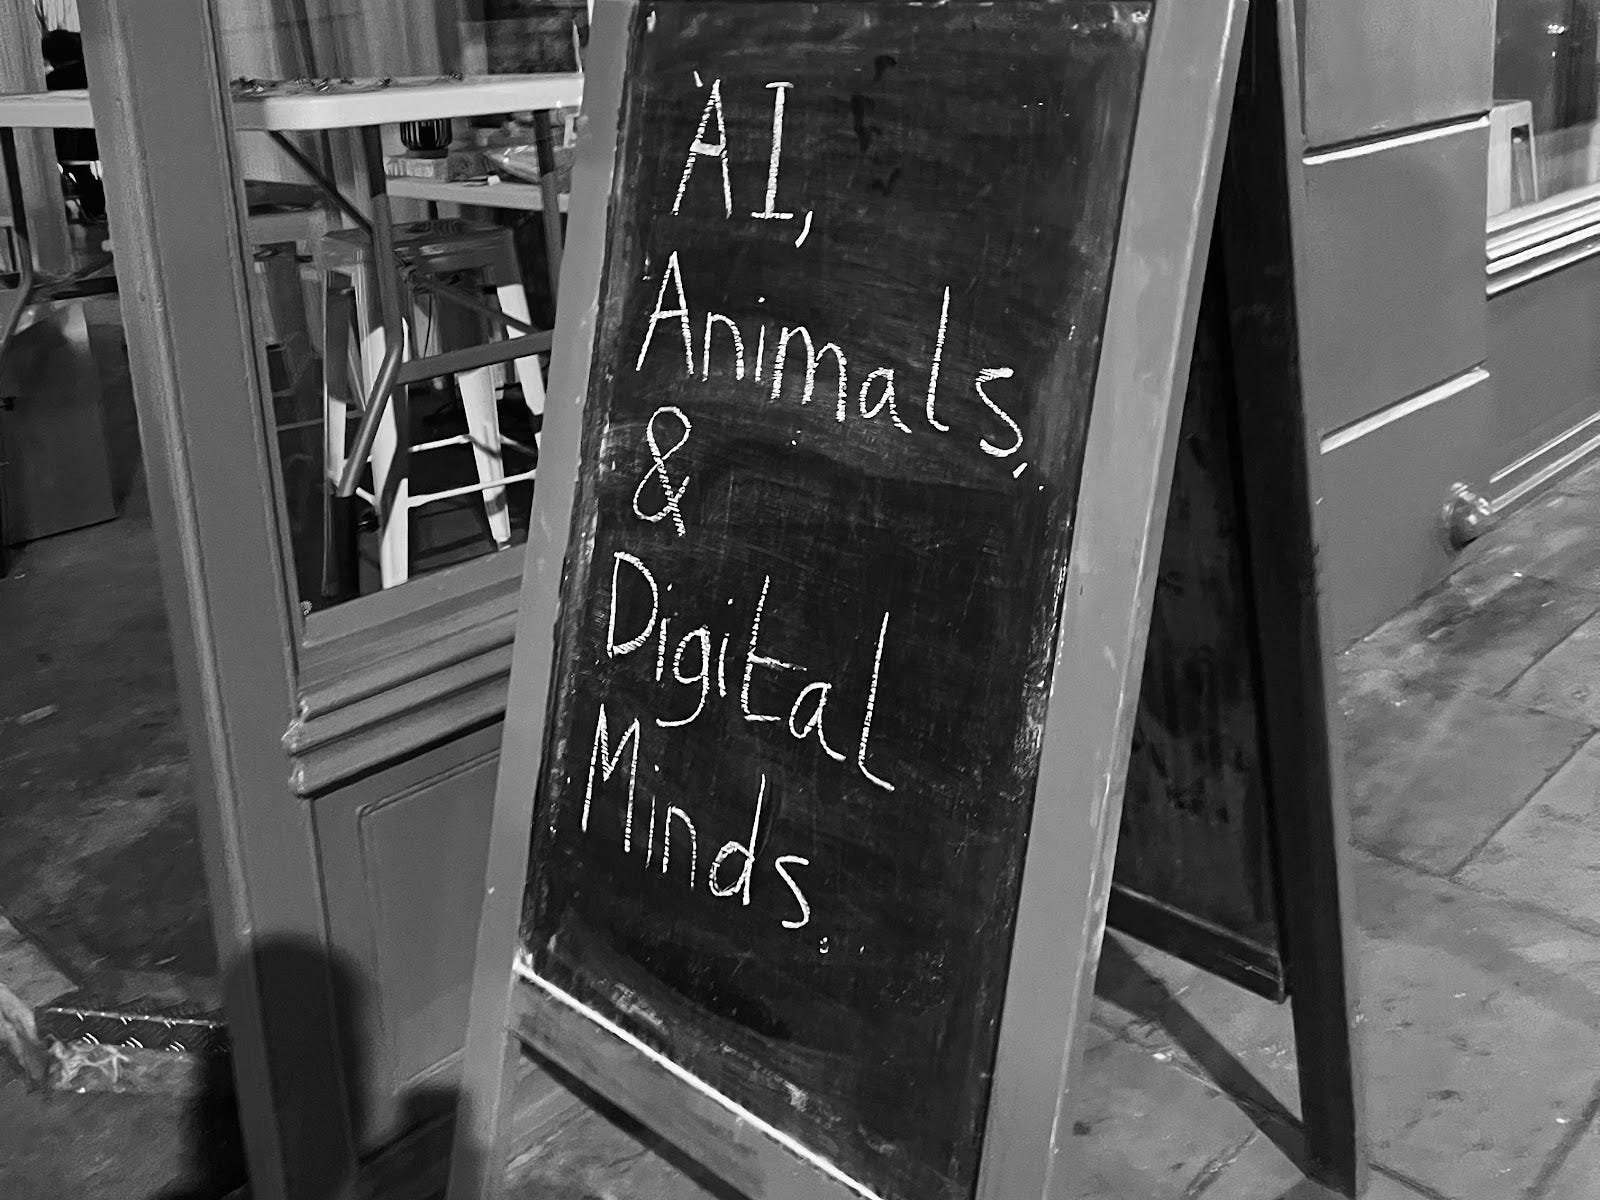 AI,
Animals,
&
Digital
Minds.